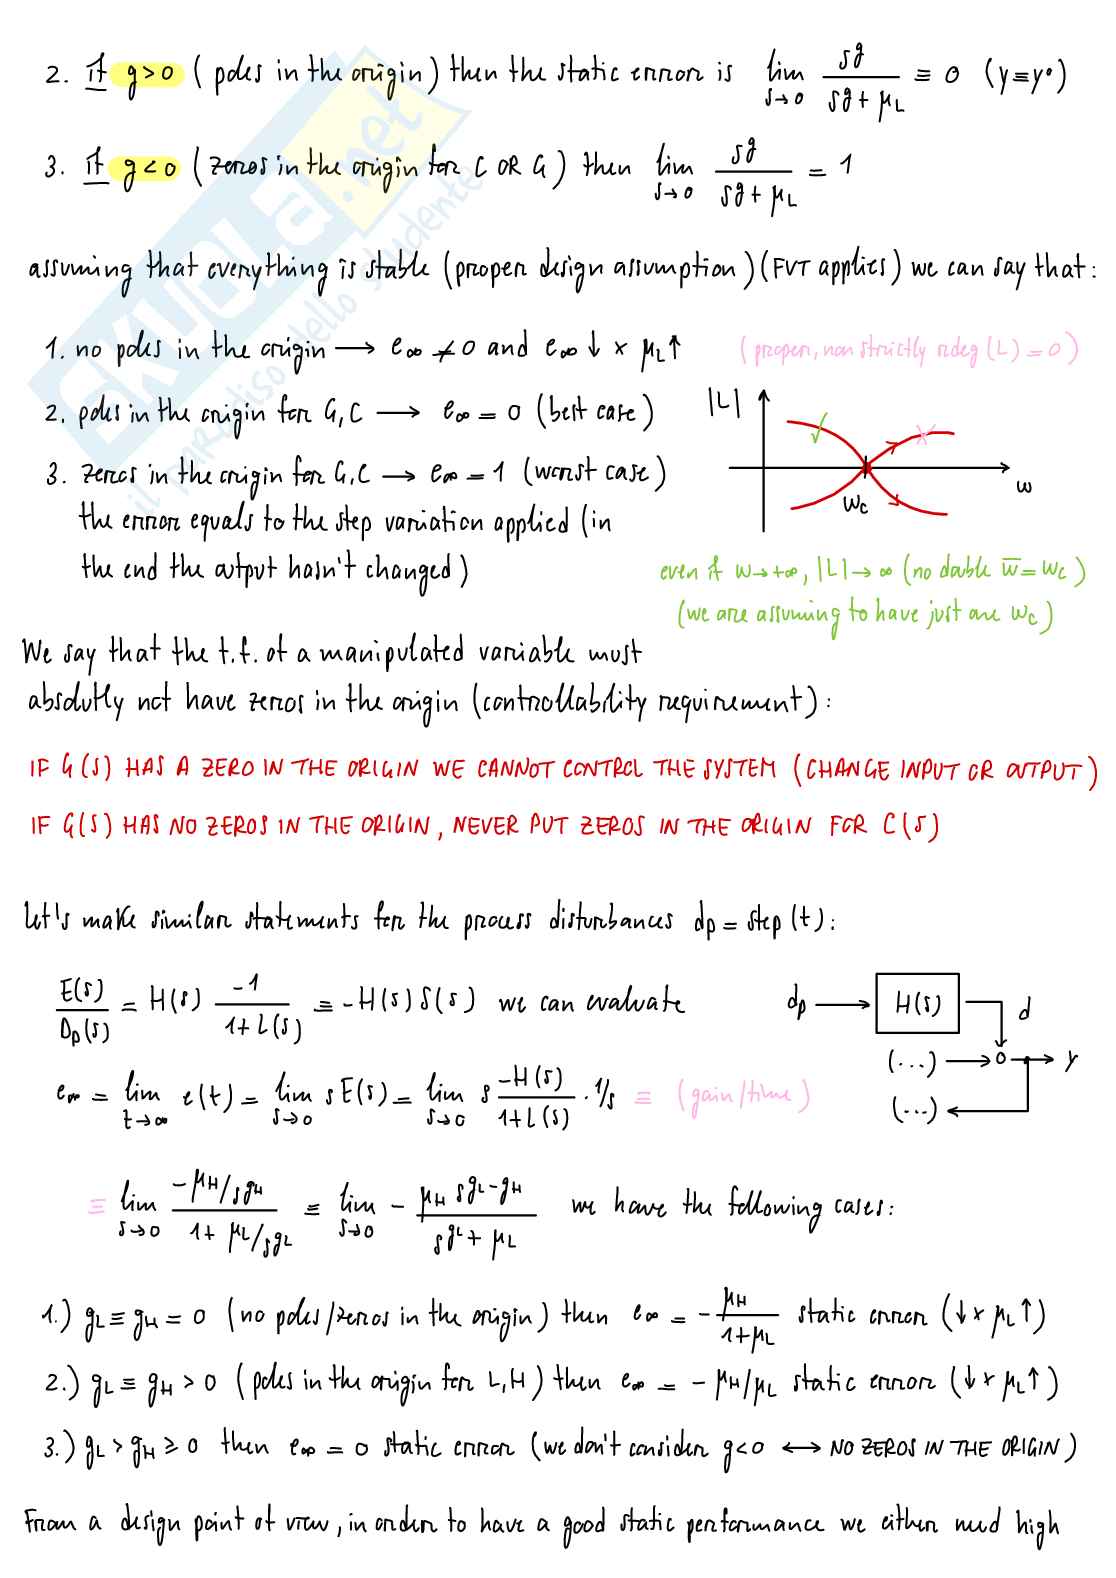 2. if g>0 (poles in the origin) then the static error is lim s→0 s^g / (s^g + μL) ≡ 0 (y≡y°)
3. if g<0 (zeros in the origin for C OR G) then lim s→0 s^g / (s^g + μL) = 1
assuming that everything is stable (proper design assumption) (FVT applies) we can say that:
1. no poles in the origin → e∞ ≠ 0 and e∞ ↓ x μL ↑
(proper, non strictly rdeg(L) = 0)
2. poles in the origin for G,C → e∞ = 0 (best case)
3. zeros in the origin for G,C → e∞ = 1 (worst case)
the error equals to the step variation applied (in
the end the output hasn't changed)
|L|
ωc
ω
even if ω→+∞, |L|→∞ (no double ω̄ = ωc)
(we are assuming to have just one ωc)
We say that the t.f. of a manipulated variable must
absolutly not have zeros in the origin (controllability requirement):
IF G(s) HAS A ZERO IN THE ORIGIN WE CANNOT CONTROL THE SYSTEM (CHANGE INPUT OR OUTPUT)
IF G(s) HAS NO ZEROS IN THE ORIGIN, NEVER PUT ZEROS IN THE ORIGIN FOR C(s)
Let's make similar statements for the process disturbances dp = step(t):
E(s)/Dp(s) = H(s) -1/(1+L(s)) ≡ -H(s)S(s) we can evaluate
dp → H(s) d
(...) → o → y
(...)
e∞ = lim t→∞ e(t) = lim s→0 sE(s) = lim s→0 s -H(s)/(1+L(s)) · 1/s ≡ (gain/time)
≡ lim s→0 (-μH/s^gH)/(1+μL/s^gL) ≡ lim s→0 - μH s^(gL-gH)/(s^gL + μL) we have the following cases:
1.) gL ≡ gH = 0 (no poles/zeros in the origin) then e∞ = - μH/(1+μL) static error (↓ x μL ↑)
2.) gL ≡ gH > 0 (poles in the origin for L,H) then e∞ = - μH/μL static error (↓ x μL ↑)
3.) gL > gH ≥ 0 then e∞ = 0 static error (we don't consider g<0 ↔ NO ZEROS IN THE ORIGIN)
From a design point of view, in order to have a good static performance we either need high
SKUOLA.net
il paradiso dello studente